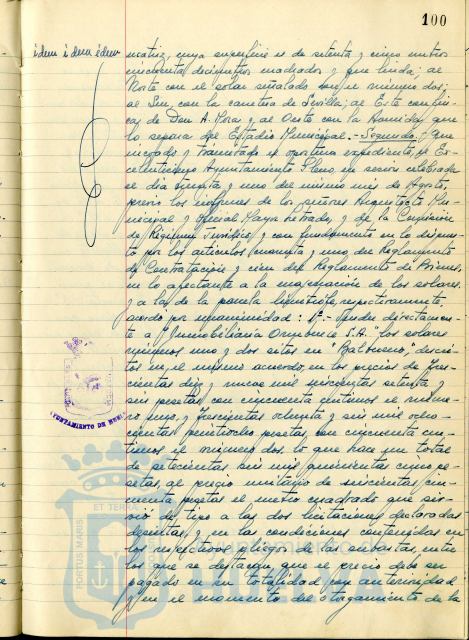 100
idem idem idem
matriz, cuya superficie es de setenta y cinco metros
cincuenta decímetros cuadrados y que linda; al
Norte con el solar señalado con el número dos;
al Sur, con la carretera de Sevilla; al Este con fin-
cas de Don A. Mora y al Oeste con la Avenida que
lo separa del Estadio Municipal.- Segundo: Que
incoado y tramitado el oportuno expediente, el Ex-
celentísimo Ayuntamiento Pleno, en sesión celebrada
el día treinta y uno del mismo mes de Agosto,
previo los informes de los señores Arquitecto Mu-
nicipal y Oficial Mayor Letrado, y de la Comisión
de Régimen Jurídico, y con fundamento en lo dispues-
to por los artículos cuarenta y uno del Reglamento
de Contratación y cien del Reglamento de Bienes,
en lo afectante a la enajenación de los solares
y a la de la parcela respectivamente,
acordó por unanimidad: 1º.- Vender directamen-
te a "Inmobiliaria Onubense S.A." los solares
números uno y dos sitos en "Balbueno", descri-
tos en el mismo acuerdo, en los precios de tres-
cientas diez y nueve mil seiscientas setenta y
seis pesetas con cincuenta céntimos el núme-
ro uno, y trescientas ochenta y seis mil ocho-
cientas veintiocho pesetas, con cincuenta cén-
timos el número dos, lo que hace un total
de setecientas seis mil quinientas cinco pe-
setas, al precio unitario de seiscientas cin-
cuenta pesetas el metro cuadrado que sir-
vió de tipo a las dos licitaciones declaradas
desiertas, y en las condiciones contenidas en
los respectivos pliegos de las subastas, entre
los que se destacan que el precio debe ser
pagado en su totalidad con anterioridad
y en el momento del otorgamiento de la
AYUNTAMIENTO DE
PORTUS MARIS
ET TERRÆ
Ayuntamiento